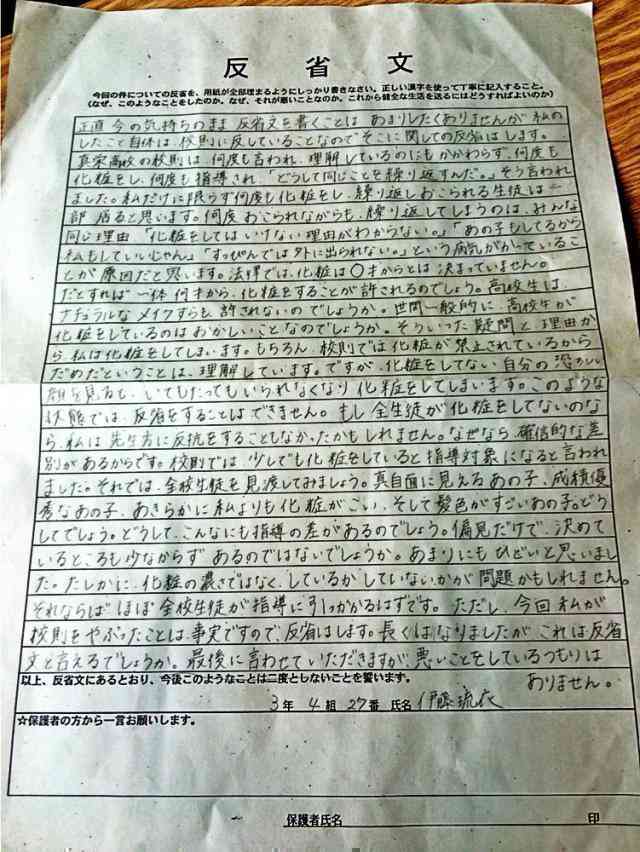 反省文
今回の件についての反省を、用紙が全部埋まるようにしっかり書きなさい。正しい漢字を使って丁寧に記入すること。
（なぜ、このようなことをしたのか。なぜ、それが悪いことなのか。これから健全な生活を送るにはどうすればよいのか）
正直今の気持ちのまま反省文を書くことは、あまりしたくありませんが私の
したこと自体は、校則に反していることなのでそこに関しての反省はします。
真栄高校の校則は、何度も言われ、理解しているのにもかかわらず、何度も
化粧をし、何度も指導され「どうして同じことを繰り返すんだ。」そう言われ
ました。私だけに限らず何度も化粧をし、繰り返しおこられる生徒は一
部居ると思います。何度おこられながらも、繰り返してしまうのは、みんな
同じ理由「化粧をしてはいけない理由がわからない。」「あの子もしてるから
私もしていいじゃん」「すっぴんでは外に出られない。」という病気がかっているこ
とが原因だと思います。法律では、化粧は〇才からとは決まっていません。
だとすれば一体何才から、化粧をすることが許されるのでしょう。高校生は、
ナチュラルなメイクすらも、許されないのでしょうか。世間一般的に、高校生が
化粧をしているのはおかしいことなのでしょうか。そういった疑問と理由か
ら、私は化粧をしてしまいます。もちろん、校則では化粧が禁止されているから
だめだということは、理解しています。ですが、化粧をしてない自分の恐ろしい
顔を見ると、いてもたってもいられなくなり化粧をしてしまいます。このような
状態では、反省をすることはできません。もし全生徒が化粧をしてないのな
ら、私は先生方に反抗をすることもなかったかもしれません。なぜなら、確信的な差
別があるからです。校則では、少しでも化粧をしていると指導対象になると言われ
ました。それでは、全校生徒を見渡してみましょう。真面目に見えるあの子、成績優
秀なあの子、あきらかに私よりも化粧がこい、そして髪色がすごいあの子。どう
してでしょう。どうして、こんなにも指導の差があるのでしょう。偏見だけで、決めて
いるところも少なからずあるのではないでしょうか。あまりにもひどいと思いまし
た。たしかに、化粧の濃さではなく、しているかしていないかが問題かもしれません。
それならばほぼ全校生徒が指導に引っかかるはずです。ただし、今回私が
校則をやぶったことは事実ですので、反省はします。長くはなりましたがこれは反省
文と言えるでしょうか。最後に言わせていただきますが、悪いことをしているつもりは
ありません。
以上、反省文にあるとおり、今後このようなことは二度としないことを誓います。
3年 4組 27番 氏名 伊藤琉衣
☆保護者の方から一言お願いします。
保護者氏名 印